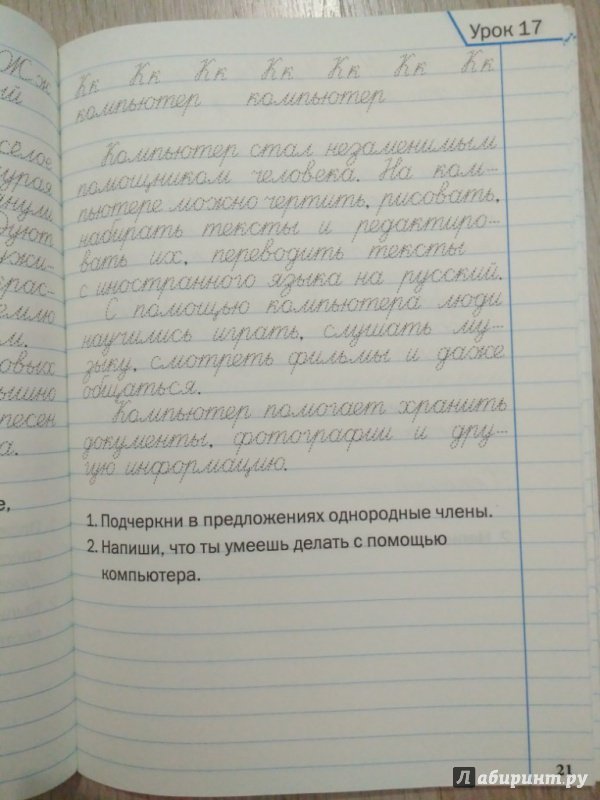 Ж ж
ый
селое
урая
анули
дуют
ужи-
крас-
емлю
м.
овых
ышно
песен
а.
е,
Урок 17
Кк Кк Кк Кк Кк Кк Кк
компьютер компьютер
Компьютер стал незаменимым
помощником человека. На ком-
пьютере можно чертить, рисовать,
набирать тексты и редактиро-
вать их, переводить тексты
с иностранного языка на русский.
С помощью компьютера люди
научились играть, слушать му-
зыку, смотреть фильмы и даже
общаться.
Компьютер помогает хранить
документы, фотографии и дру-
гую информацию.
1. Подчеркни в предложениях однородные члены.
2. Напиши, что ты умеешь делать с помощью
компьютера.
21
Лабиринт.ру